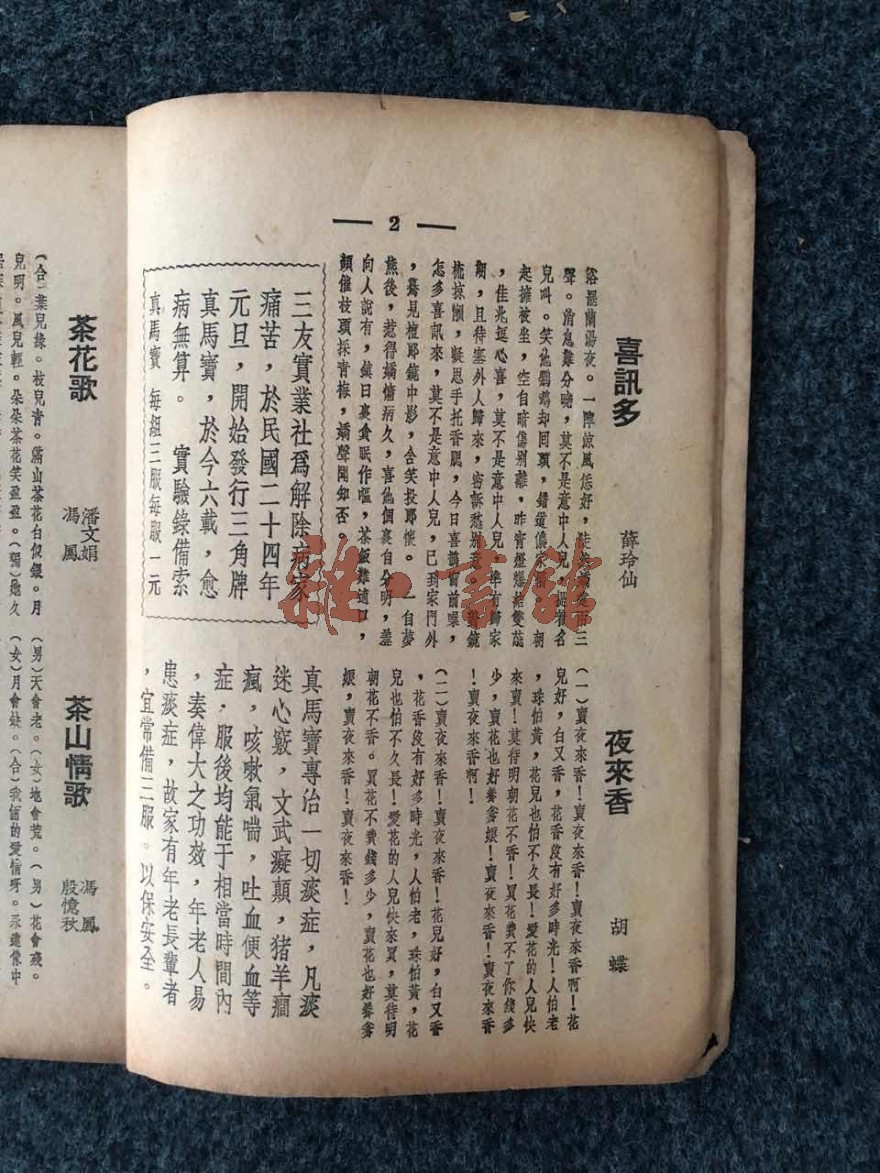 2
喜訊多
薛玲仙
浴罷蘭湯夜。一陣涼風恁好,
聲。消息難分曉,莫不是意中人兒,提着名
兒叫。笑他鸚鵡却回頭,錯道儂家
起擁被坐,空自暗傷別離,昨宵燈爆結雙蕊
,佳兆逗心喜,莫不是意中人兒,準有歸家
期,且待塞外人歸來,密訴愁別
梳掠懶,凝思手托香腮,今日喜鵲窗前噪,
怎多喜訊來,莫不是意中人兒,已到家門外
,驀見檀郎鏡中影,含笑投郎懷。一自夢
熊後,惹得嬌慵病久,喜他個裏自分明,羞
向人說有,鎮日裏貪眠作嘔,茶飯難適口,
頻催枝頭採青梅,嬌聲問知否。
三友實業社爲解除病家
痛苦,於民國二十四年
元旦,開始發行三角牌
真馬寶,於今六載,愈
病無算。 實驗錄備索
真馬寶 每組三服每服一元
夜來香
胡蝶
(一)賣夜來香!賣夜來香!賣夜來香啊!花
兒好,白又香,花香沒有好多時光!人怕老
,珠怕黃,花兒也怕不久長!愛花的人兒快
來買!莫待明朝花不香!買花費不了你錢多
少,賣花也好養爹娘!賣夜來香!賣夜來香
!賣夜來香啊!
(二)賣夜來香!賣夜來香!花兒好,白又香
,花香沒有好多時光,人怕老,珠怕黃,花
兒也怕不久長!愛花的人兒快來買,莫待明
朝花不香。買花不費錢多少,賣花也好養爹
娘,賣夜來香!賣夜來香!
真馬寶專治一切痰症,凡痰
迷心竅,文武癡顛,猪羊癎
瘋,咳嗽氣喘,吐血便血等
症,服後均能于相當時間內
,奏偉大之功效,年老人易
患痰症,故家有年老長輩者
,宜常備三服。以保安全。
茶花歌
潘文娟
馮鳳
(合)葉兒綠。枝兒青。滿山茶花白似銀。月
兒明。風兒輕。朵朵茶花笑盈盈。(獨)
茶山情歌
馮鳳
殷憶秋
(男)天會老。(女)地會荒。(男)花會殘。
(女)月會缺。(合)我倆的愛情呀。永遠像中
雜·書館